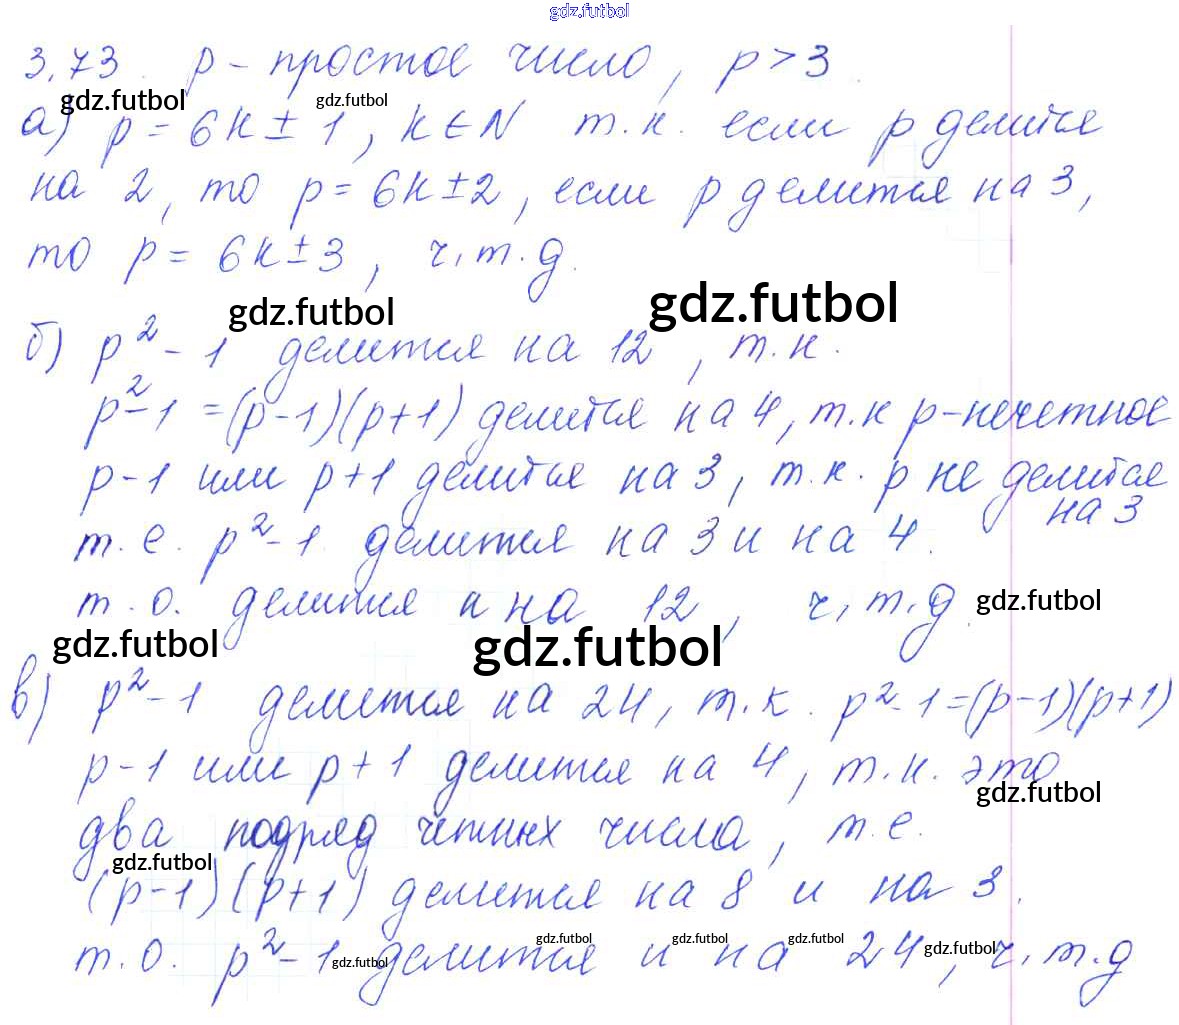 gdz.futbol
3.73. p – простое число, p > 3.
gdz.futbol gdz.futbol
а) p = 6k ± 1, k ∈ N т.к. если p делится
на 2, то p = 6k ± 2, если p делится на 3,
то p = 6k ± 3, ч.т.д.
gdz.futbol gdz.futbol
б) p² – 1 делится на 12, т.к.
p² – 1 = (p – 1)(p + 1) делится на 4, т.к p – нечетное
p – 1 или p + 1 делится на 3, т.к. p не делится
на 3
т.е. p² – 1 делится на 3 и на 4.
т.о. делится и на 12, ч.т.д. gdz.futbol
gdz.futbol gdz.futbol
в) p² – 1 делится на 24, т.к. p² – 1 = (p – 1)(p + 1)
p – 1 или p + 1 делится на 4, т.к. это
gdz.futbol
два подряд четных числа, т.е.
gdz.futbol
(p – 1)(p + 1) делится на 8 и на 3.
gdz.futbol gdz.futbol gdz.futbol gdz.futbol
т.о. p² – 1 делится и на 24, ч.т.д
gdz.futbol